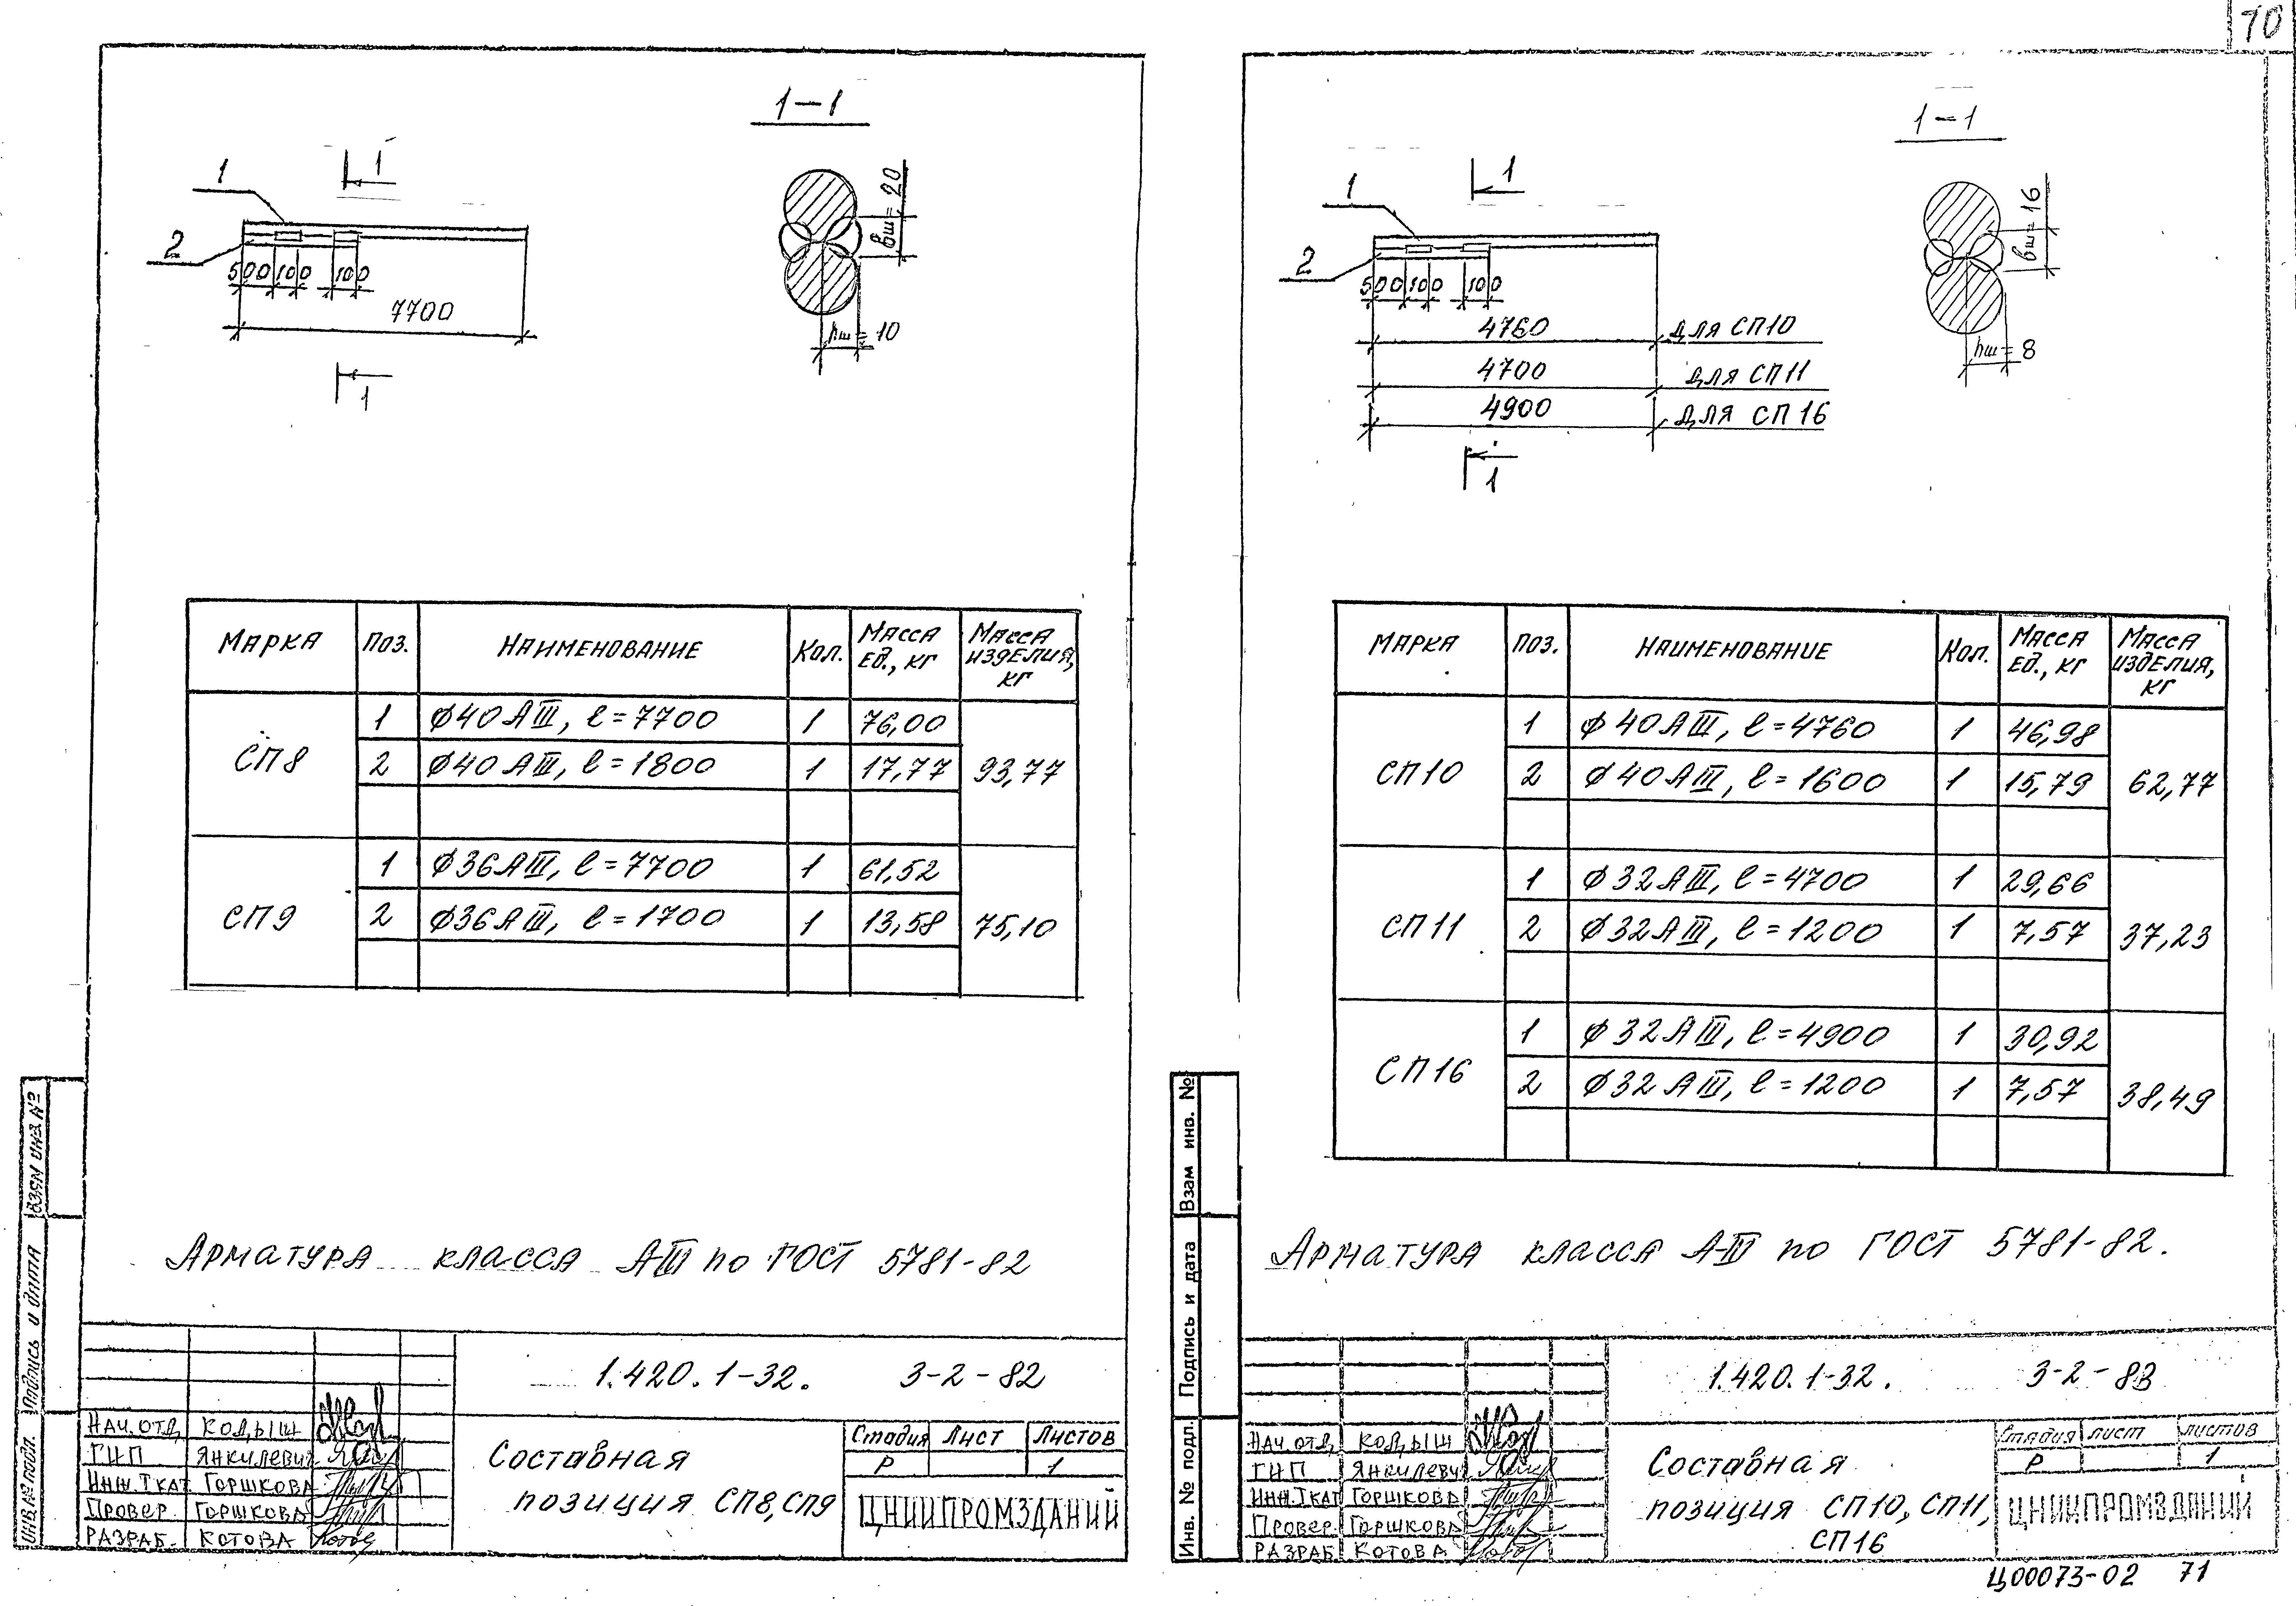 70
1-1
1
1
2
500 100 100
7700
1
bш=20
hш=10
МАРКА ПОЗ. НАИМЕНОВАНИЕ КОЛ. МАССА ЕД., КГ МАССА ИЗДЕЛИЯ, КГ
СП8
1 Ø40АIII, ℓ=7700 1 76,00
2 Ø40АIII, ℓ=1800 1 17,77 93,77
СП9
1 Ø36АIII, ℓ=7700 1 61,52
2 Ø36АIII, ℓ=1700 1 13,58 75,10
АРМАТУРА КЛАССА А-III ПО ГОСТ 5781-82
1.420.1-32. 3-2-82
НАЧ.ОТД. КОДЫШ
ГИП ЯНКИЛЕВИЧ
ИНЖ.ІКАТ ГОРШКОВА
ПРОВЕР. ГОРШКОВА
РАЗРАБ. КОТОВА
Составная
позиция СП8, СП9
Стадия Лист Листов
Р 1
ЦНИИПРОМЗДАНИЙ
ВЗАМ ИНВ. №
Подпись и дата
ИНВ. № подл.
1-1
1
1
2
500 100 100
4760 для СП10
4700 для СП11
4900 для СП16
1
bш=16
hш=8
МАРКА ПОЗ. НАИМЕНОВАНИЕ КОЛ. МАССА ЕД., КГ МАССА ИЗДЕЛИЯ, КГ
СП10
1 Ø40АIII, ℓ=4760 1 46,98
2 Ø40АIII, ℓ=1600 1 15,79 62,77
СП11
1 Ø32АIII, ℓ=4700 1 29,66
2 Ø32АIII, ℓ=1200 1 7,57 37,23
СП16
1 Ø32АIII, ℓ=4900 1 30,92
2 Ø32АIII, ℓ=1200 1 7,57 38,49
АРМАТУРА КЛАССА А-III ПО ГОСТ 5781-82.
1.420.1-32. 3-2-83
НАЧ.ОТД. КОДЫШ
ГИП ЯНКИЛЕВИЧ
ИНЖ.ІКАТ ГОРШКОВА
ПРОВЕР. ГОРШКОВА
РАЗРАБ. КОТОВА
Составная
позиция СП10, СП11,
СП16
Стадия Лист Листов
Р 1
ЦНИИПРОМЗДАНИЙ
Взам инв. №
Подпись и дата
Инв. № подл.
Ц00073-02 71